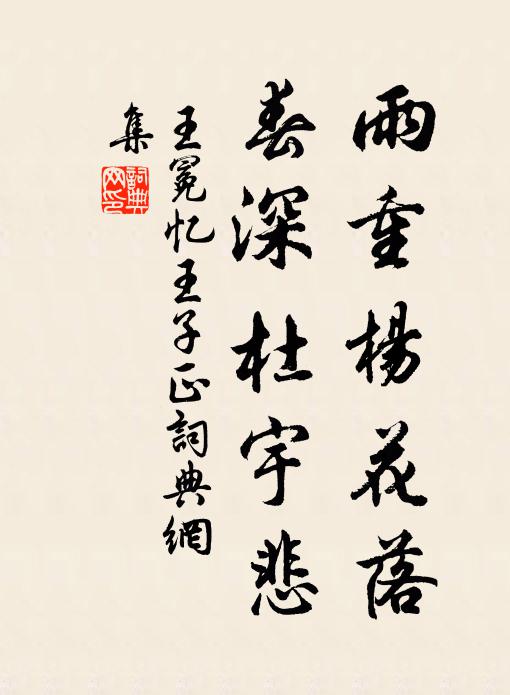 雨重楊花落
春深杜宇悲
王冕忆王子正詞典網
集
詞典网印